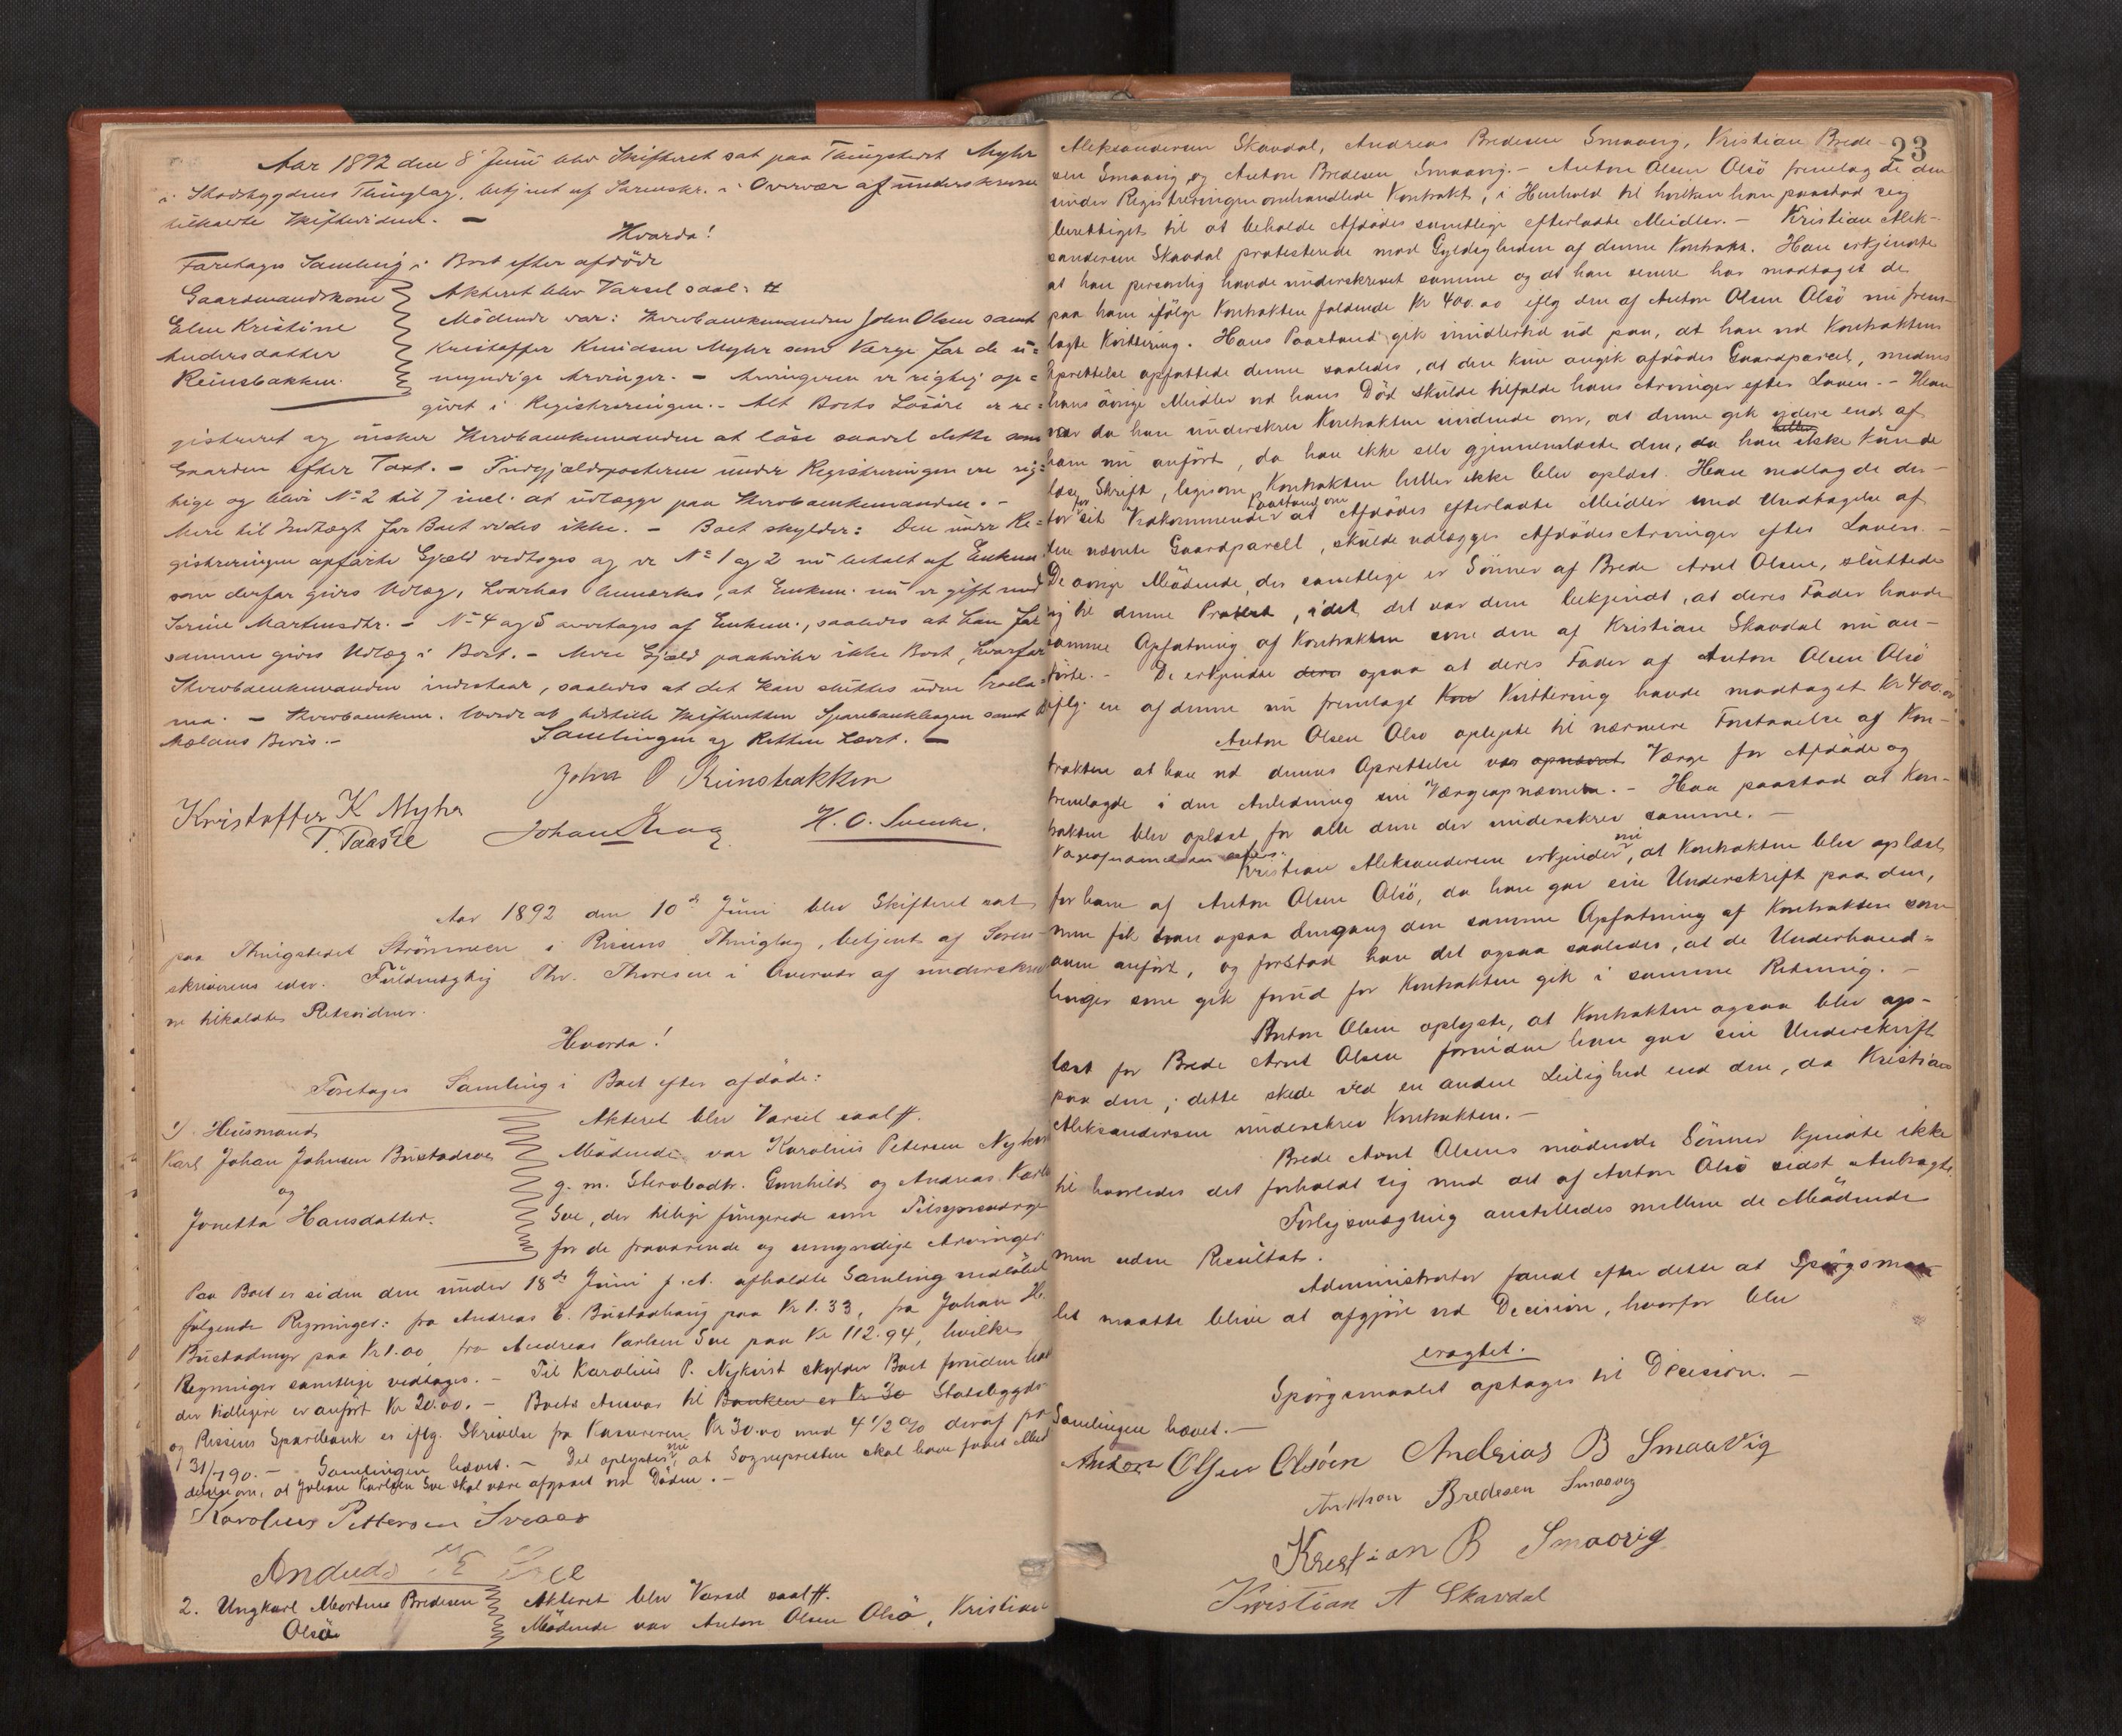 Aar 1892 den 8 Juni blev Skifteret sat paa Thingstedet Myhr
i Stadsbygdens Thinglag, betjent af Sorenskr. i Overvær af underskrevne
tilkaldte Skiftevidner. —
Hvorda!
Foretages Samling i Boet efter afdöde
Gaardmandskone
Elen Kristine
Andersdatter
Reinsbakken.
Akteret blev Varsel saal. #
Mödende var: Hvorbaenkemanden John Olsen samt
Kristoffer Knudsen Myhr som Værge for de u=
myndige Arvinger. — Arvingerne er rigtig op=
givet i Registreringen. — Alt Boets Lösöre er re=
gistreret og önsker Stervboenkemanden at löse saavel dette som
Gaarden efter Taxt. — Indgjældsposterne under Registreringen ere rig=
tige og blev No 2 til 7 incl. at udlægge paa Stervboenkemanden. —
Mere til Indtægt for Boet vides ikke. — Boet skylder: Den under Re=
gistreringen opförte Gjæld vedtoges og er No 1 og 2 nu betalt af Enkem.
som derfor gives Udlæg, hvorhos bemærkes, at Enkem. nu er gift med
Serine Martensdtr. — No 4 og 5 overtages af Enkem., saaledes at han for
samme gives Udlæg i Boet. — Mere Gjæld paahviler ikke Boet, hvorfor
Stervboenkemanden indestaar, saaledes at det kan sluttes uden Procla=
ma. — Stervboenkem. lovede at tilstille Skifteretten Sparebankbogen samt
Mælans Bevis. —
Samlingen og Retten hævet. —
John O Reinsbakken
Kristoffer K Myhr
T. Taasee
Johan
H. O.
Aar 1892 den 10de Juni blev Skifteret sat
paa Thingstedet Strömmen i Rissens Thinglag, betjent af Soren-
skriverens edsv. Fuldmægtig Thv. Thoresen i Overvær af underskrev
ne tilkaldte Retsvidner.
Hvorda!
Foretages Samling i Boet efter afdöde:
1) Husmand
Karl Johan Johnsen Bustadsve
og
Jonetta Hansdatter.
Akteret blev Varsel saal #.
Mödende var Karolius Petersen Nykvist
g. m. Stervbodtr. Gunhild og Andreas Karls
Sve, der tillige fungerede som Tilsynsværge
for de fraværende og umyndige Arvinger.
Paa Boet er siden den under 18de Juni f. A. afholdte Samling nedlöbet
fölgende Regninger: fra Andreas E. Bustadhaug paa Kr 1.33, fra Johan H.
Bustadmyr paa Kr 1.00, fra Andreas Karlsen Sve paa Kr 112.94, hvilke
Regninger samtlige vedtages. — Til Karolius P. Nykvist skylder Boet foruden hvad
der tidligere er anfört Kr 20.00. — Boets Ansvar til Banken er Kr 30 Stadsbygds-
og Rissens Sparebank er iflg. Skrivelse fra Kassereren Kr 30.00 med 4 1/2 % deraf fra
31/7 90. — Samlingen hævet. — Det oplystes nu, at Sognepresten skal have faaet Med-
delelse om, at Johan Karlsen Sve skal være afgaaet ved Döden. —
Karolius Pettersen Sveaas
Andreas K Sve
2. Ungkarl Martinus Bredesen
Olsö
Akteret blev Varsel saal #.
Mödende var Anton Olsen Olsö, Kristian
23
Aleksandersen Skavdal, Andreas Bredesen Smaavig, Kristian Brede-
sen Smaavig og Anton Bredesen Smaavig. — Anton Olsen Olsö fremlagde den
under Registreringen omhandlede Kontrakt, i Henhold til hvilken han paastod sig
berettiget til at beholde Afdödes samtlige efterladte Midler. — Kristian Alek-
sandersen Skavdal protesterede mod Gyldigheden af denne Kontrakt. Han erkjendte
at han personlig havde underskrevet samme og at han senere har modtaget de
paa ham ifölge Kontrakten faldende Kr 400.00 iflg den af Anton Olsen Olsö nu frem-
lagte Kvittering. Hans Paastand gik imidlertid ud paa, at han ved Kontraktens
Oprettelse opfattede denne saaledes, at den kun angik afdödes Gaardparcel, medens
hans övrige Midler ved hans Död skulde tilfalde hans Arvinger efter Loven. — Han
var da han underskrev Kontrakten uvidende om, at denne gik videre end af
ham nu anfört, da han ikke selv gjennemlæste den, da han heller ikke kunde
læse Skrift, ligesom Kontrakten heller ikke blev oplæst. Han nedlagde der-
for for sit Vedkommende Paastand om at Afdödes efterladte Midler med Undtagelse af
den nævnte Gaardparcell, skulde udlægges Afdödes Arvinger efter Loven. —
De övrige Mödende, der samtlige er Sönner af Brede Arnt Olsen, sluttede
sig til denne Protest, idet det var dem bekjendt, at deres Fader havde
samme Opfatning af Kontrakten som den af Kristian Skavdal nu an-
förte. — De erkjendte deres ogsaa at deres Fader af Anton Olsen Olsö
iflg. en af denne nu fremlagt Kon Kvittering havde modtaget Kr 400.00
Anton Olsen Olsö oplyste til nærmere Forstaaelse af Kon-
trakten at han ved dennes Oprettelse var opnævnt Værge for Afdöde og
fremlagde i den Anledning sin Værgeopnævnelse. — Han paastod at Kon-
trakten blev oplæst for alle dem der underskrev samme. —
Værgeopnævnelsen
Kristian Aleksandersen erkjender nu, at Kontrakten blev oplæst
for ham af Anton Olsen Olsö, da han gav sin Underskrift paa den,
men fik han ogsaa dengang den samme Opfatning af Kontrakten som
ovenanfört, og forstod han det ogsaa saaledes, at de Underhand=
linger som gik forud for Kontrakten gik i samme Retning. —
Anton Olsen oplyste, at Kontrakten ogsaa blev op-
læst for Brede Arnt Olsen forinden han gav sin Underskrift
paa den; dette skede ved en anden Leilighed end den, da Kristian
Aleksandersen underskrev Kontrakten. —
Brede Arnt Olsens mödende Sönner kjendte ikke
til hvorledes det forholdt sig med det af Anton Olsö sidst Anbragte.
Forligsmægling anstilledes mellem de Mödende
men uden Resultat.
Administrator fandt efter dette at Spörgsmaa-
let maatte blive at afgjöre ved Decision, hvorfor blev
eragtet.
Spörgsmaalet optages til Decision. —
Samlingen hævet. —
Anton Olsen Olsöen Andreas B Smaavig
Anthon Bredesen Smaavig
Krestian B Smaavig
Kristian A Skavdal